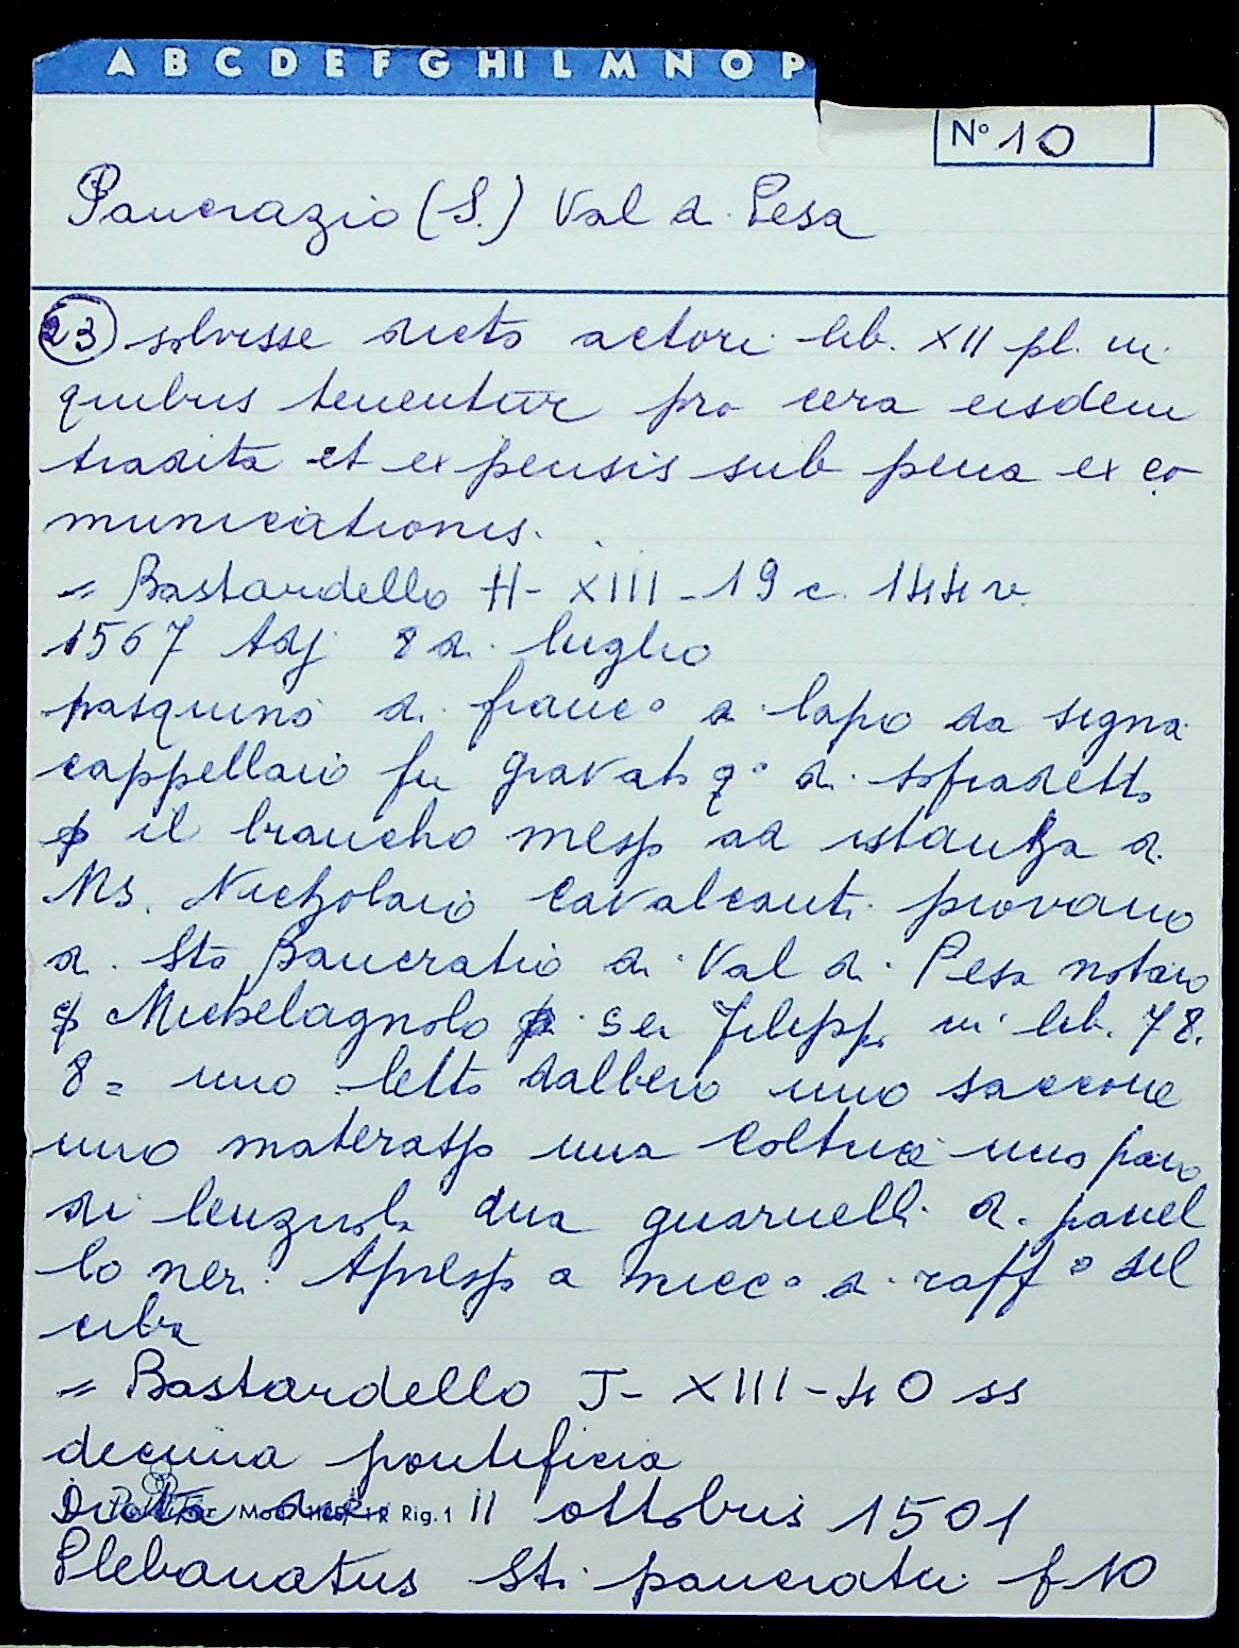 A B C D E F G HI L M N O P
N° 10
Pancrazio (S.) Val di Pesa
23 solvisse dicto actori lib. XII pl. in
quibus tenentur pro cera eisdem
tradita et expensis sub pena exco
municationis.
= Bastardello H- XIII - 19 c. 144 v.
1567 Adj 8 di luglio
pasquino di franc° di lapo da signa
cappellaio fu gravato q° di sopradetto
il brancho messo ad istanza di
Ms. Nicholaio Cavalcanti piovano
di Sto Pancratio di Val di Pesa notaio
Michelagnolo ser filippi in lib. 78.
8 = uno letto dalbero uno saccone
uno materasso una coltrice uno paio
di lenzuola dua guarnelli di panel
lo neri Apresso a micc° di raff° del
ciba
= Bastardello J- XIII - 40 ss
decima pontificia
Dicta die 11 ottobris 1501
Mod. Rig. 1
Plebanatus Sti pancratii f 10